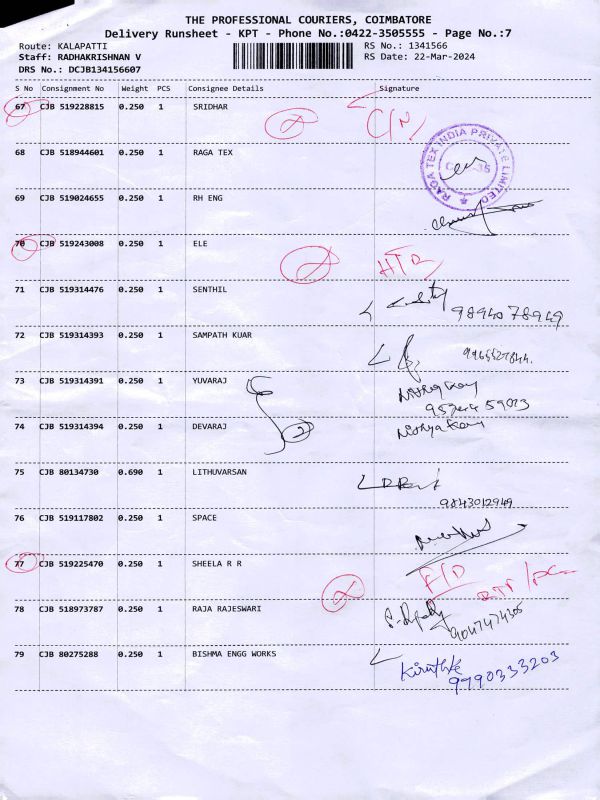 THE PROFESSIONAL COURIERS, COIMBATORE
Delivery Runsheet - KPT - Phone No.:0422-3505555 - Page No.:7
Route: KALAPATTI RS No.: 1341566
Staff: RADHAKRISHNAN V RS Date: 22-Mar-2024
DRS No.: DCJB134156607
S No Consignment No Weight PCS Consignee Details Signature
67 CJB 519228815 0.250 1 SRIDHAR C/N
68 CJB 518944601 0.250 1 RAGA TEX RAGA TEX INDIA PRIVATE LIMITED
69 CJB 519024655 0.250 1 RH ENG
70 CJB 519243008 0.250 1 ELE
71 CJB 519314476 0.250 1 SENTHIL 9894078949
72 CJB 519314393 0.250 1 SAMPATH KUAR
73 CJB 519314391 0.250 1 YUVARAJ
74 CJB 519314394 0.250 1 DEVARAJ 2
75 CJB 80134730 0.690 1 LITHUVARSAN
9843012949
76 CJB 519117802 0.250 1 SPACE
77 CJB 519225470 0.250 1 SHEELA R R F/D
78 CJB 518973787 0.250 1 RAJA RAJESWARI
9047474305
79 CJB 80275288 0.250 1 BISHMA ENGG WORKS
9790333203